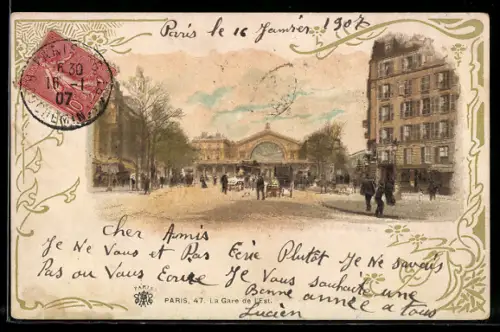 Paris le 16 Janvier 1907
PARIS
6 30
16 -1
07
Cher Amis
Je Ne Vous et Pas Ecrie Plutôt Je Ne savais
Pas ou Vous Ecrire Je Vous souhaite une
Bonne année a tous
Lucien
PARIS
PARIS, 47. La Gare de l'Est.